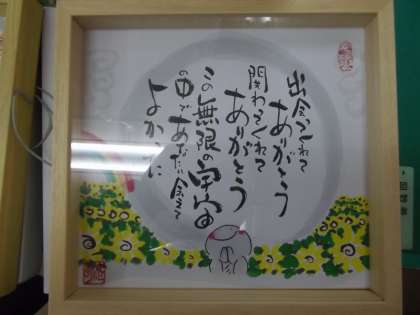 出会ってくれて
ありがとう
関わってくれて
ありがとう
この無限の宇宙
の中であなたに会えて
よかった